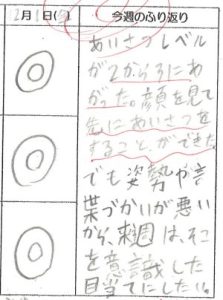 2月1日(金)
今週のふり返り
◎
◎
◎
あいさつレベル
が2から3にあ
がった。顔を見て
先にあいさつを
すること、ができた。
でも姿勢や言
葉づかいが悪い
から、来週は、そこ
を意識した
目当てにしたい。